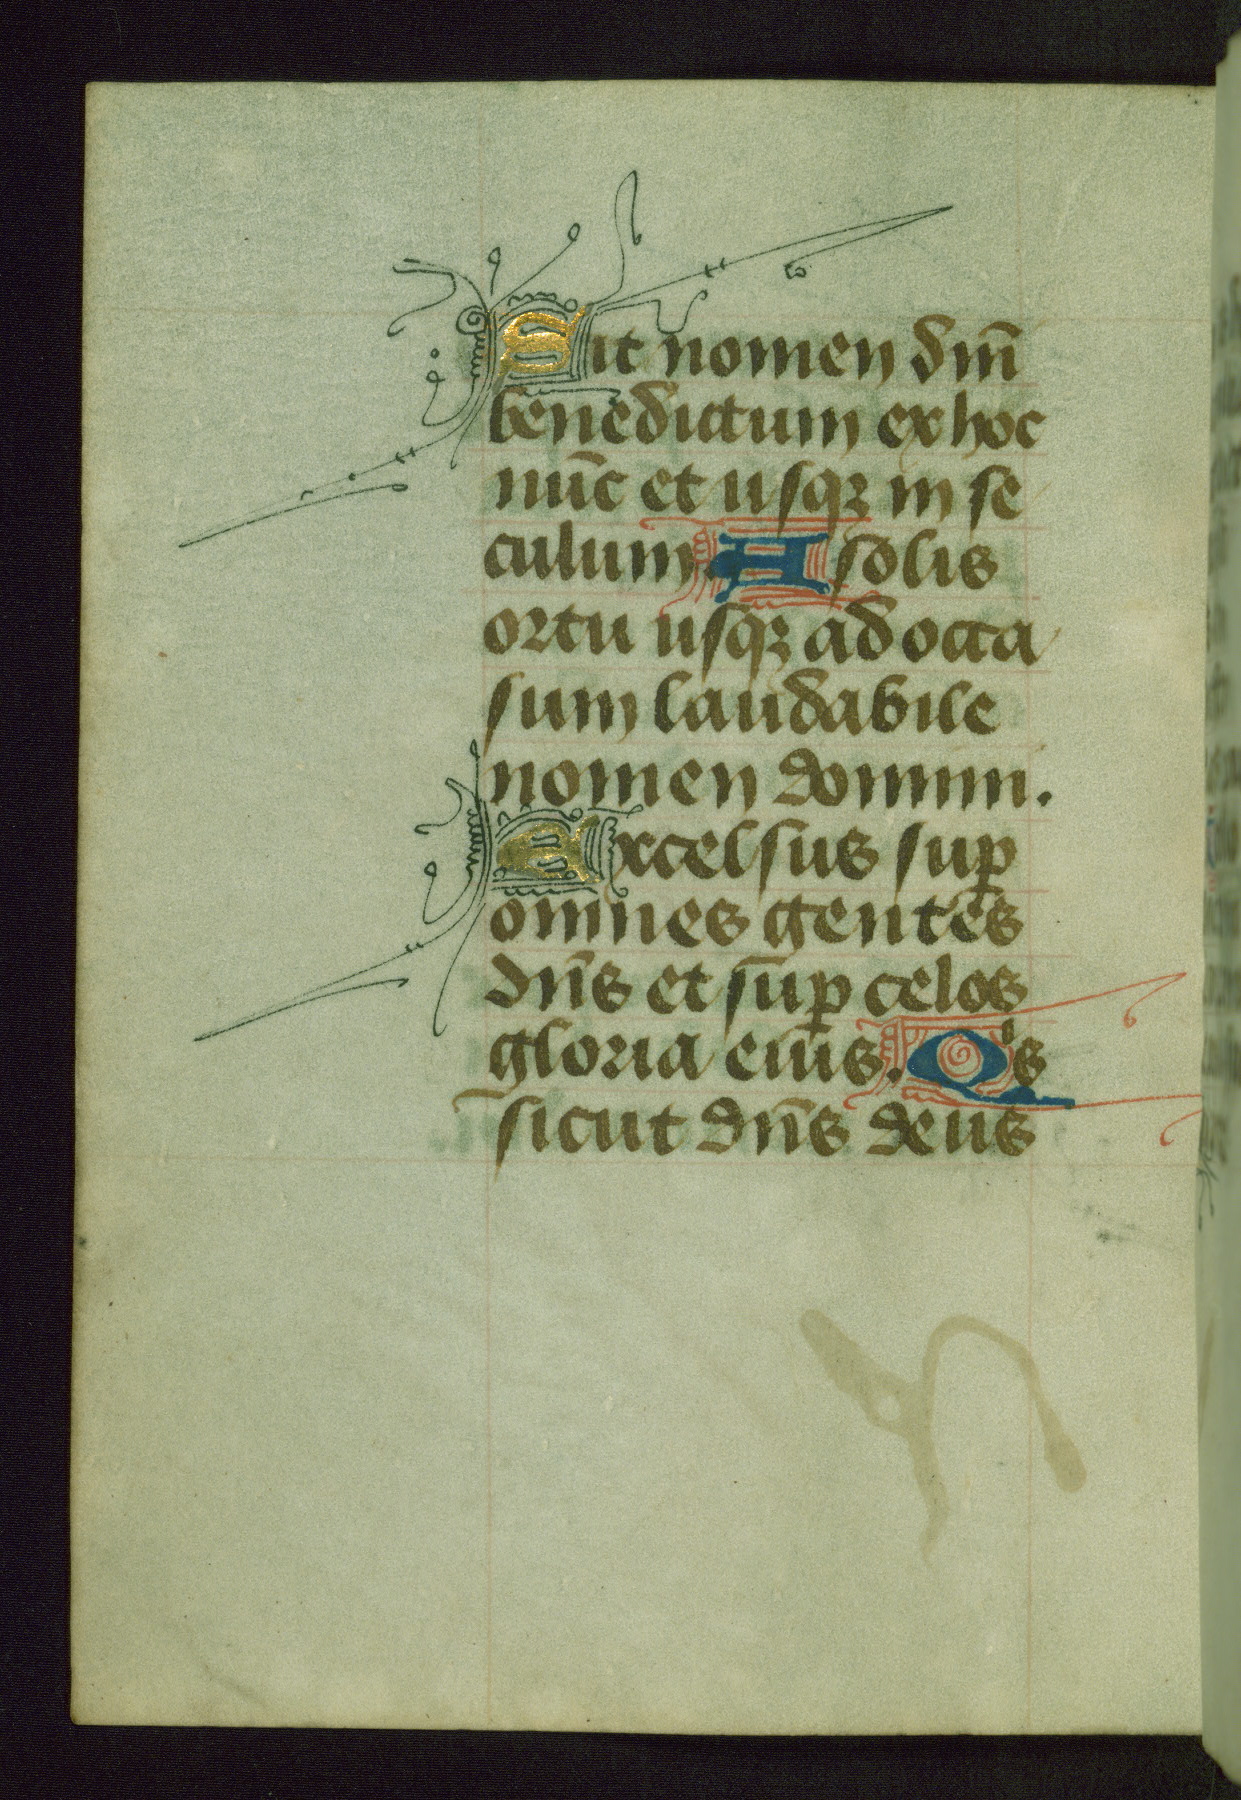 Sit nomen dm̄
benedictum ex hoc
nūc et usqꝫ in se
culum. A solis
ortu usqꝫ ad occa
sum laudabile
nomen domini.
Excelsus suꝑ
omnes gentes
dn̄s et suꝑ celos
gloria eius. Qis
sicut dn̄s deus